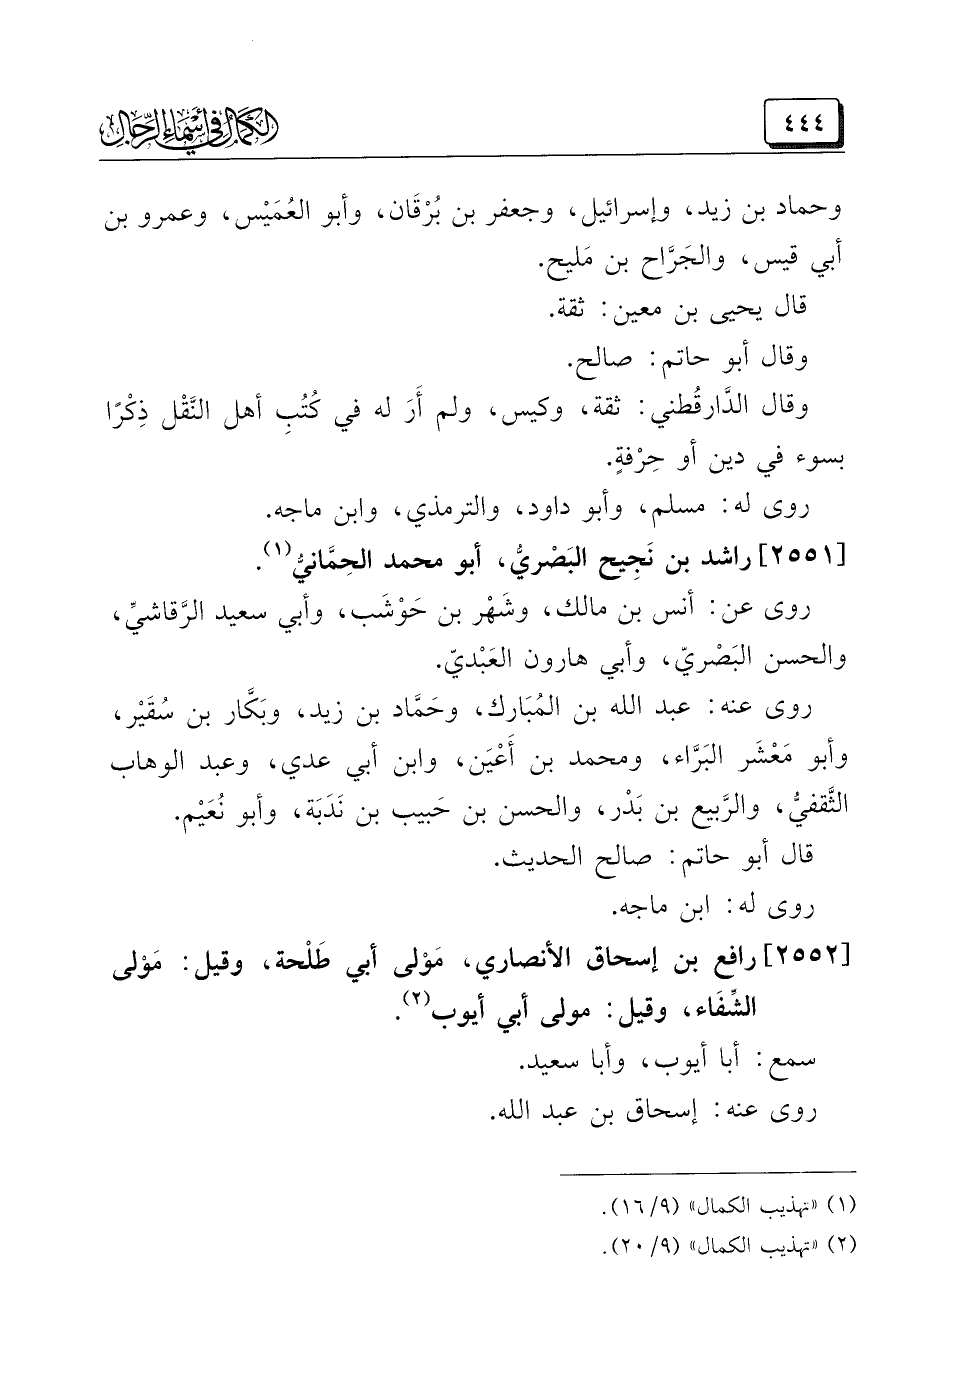 ٤٤٤
الكمال في أسماء الرجال
وحماد بن زيد، وإسرائيل، وجعفر بن بُرْقَان، وأبو العُمَيْس، وعمرو بن
أبي قيس، والجَرَّاح بن مَليح.
قال يحيى بن معين: ثقة.
وقال أبو حاتم: صالح.
وقال الدَّارقُطني: ثقة، وكيس، ولم أَرَ له في كُتُبِ أهل النَّقْل ذِكْرًا
بسوء في دين أو حِرْفةٍ.
روى له: مسلم، وأبو داود، والترمذي، وابن ماجه.
[٢٥٥١] راشد بن نَجِيح البَصْريُّ، أبو محمد الحِمَّانيُّ(١).
روى عن: أنس بن مالك، وشَهْر بن حَوْشَب، وأبي سعيد الرَّقاشيِّ،
والحسن البَصْريّ، وأبي هارون العَبْديّ.
روى عنه: عبد الله بن المُبَارك، وحَمَّاد بن زيد، وبَكَّار بن سُقَيْر،
وأبو مَعْشَر البَرَّاء، ومحمد بن أَعْيَن، وابن أبي عدي، وعبد الوهاب
الثَّقفيُّ، والرَّبيع بن بَدْر، والحسن بن حَبيب بن نَدَبَة، وأبو نُعَيْم.
قال أبو حاتم: صالح الحديث.
روى له: ابن ماجه.
[٢٥٥٢] رافع بن إسحاق الأنصاري، مَوْلى أبي طَلْحة، وقيل: مَوْلى
الشِّفَاء، وقيل: مولى أبي أيوب(٢).
سمع: أبا أيوب، وأبا سعيد.
روى عنه: إسحاق بن عبد الله.
(١) «تهذيب الكمال» (٩/ ١٦).
(٢) «تهذيب الكمال» (٩/ ٢٠).